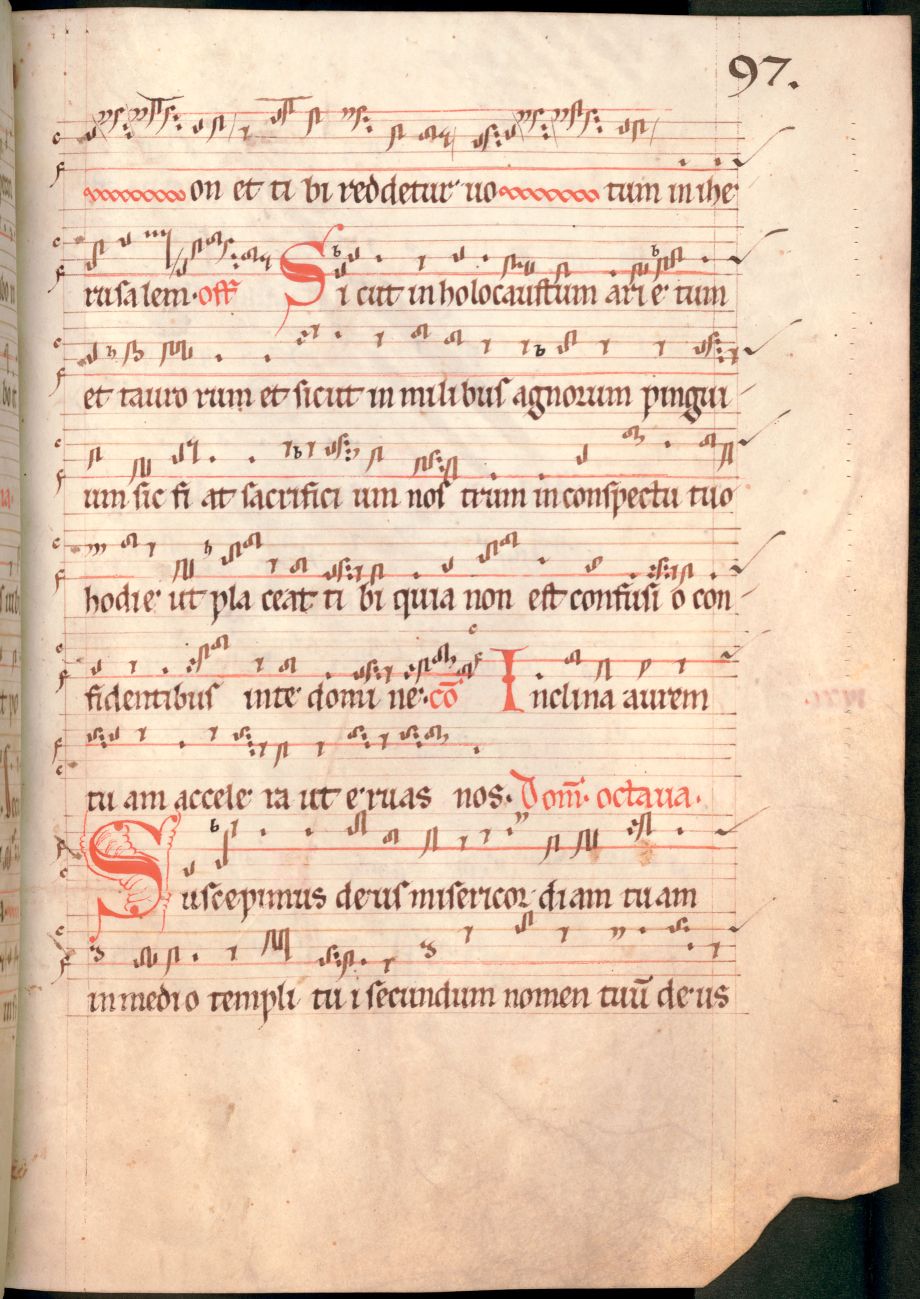 97.
on et ti bi reddetur uo tum in ihe
rusalem. off Si cut in holocaustum ari e tum
et tauro rum et sicut in milibus agnorum pingui
um sic fi at sacrifici um nos trum in conspectu tuo
hodie ut pla ceat ti bi quia non est confusi o con
fidentibus inte domi ne. cō Inclina aurem
tu am accele ra ut eruas nos. Dom̄. octaua.
Suscepimus deus misericor diam tuam
in medi o templi tu i secundum nomen tuū deus